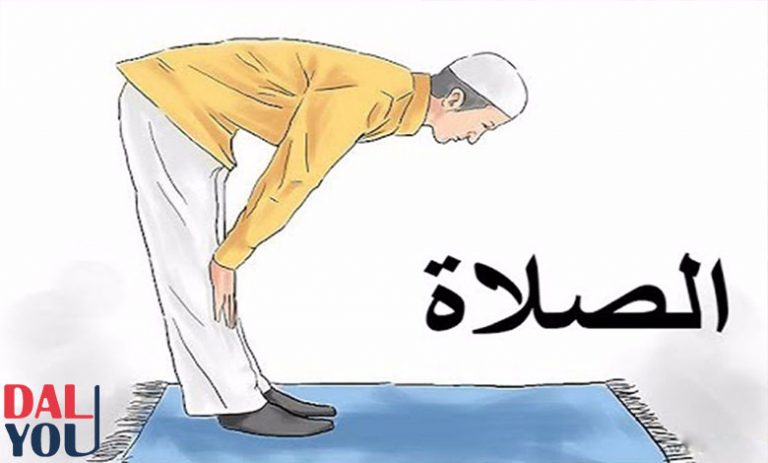 الصلاة
DAL
YOU